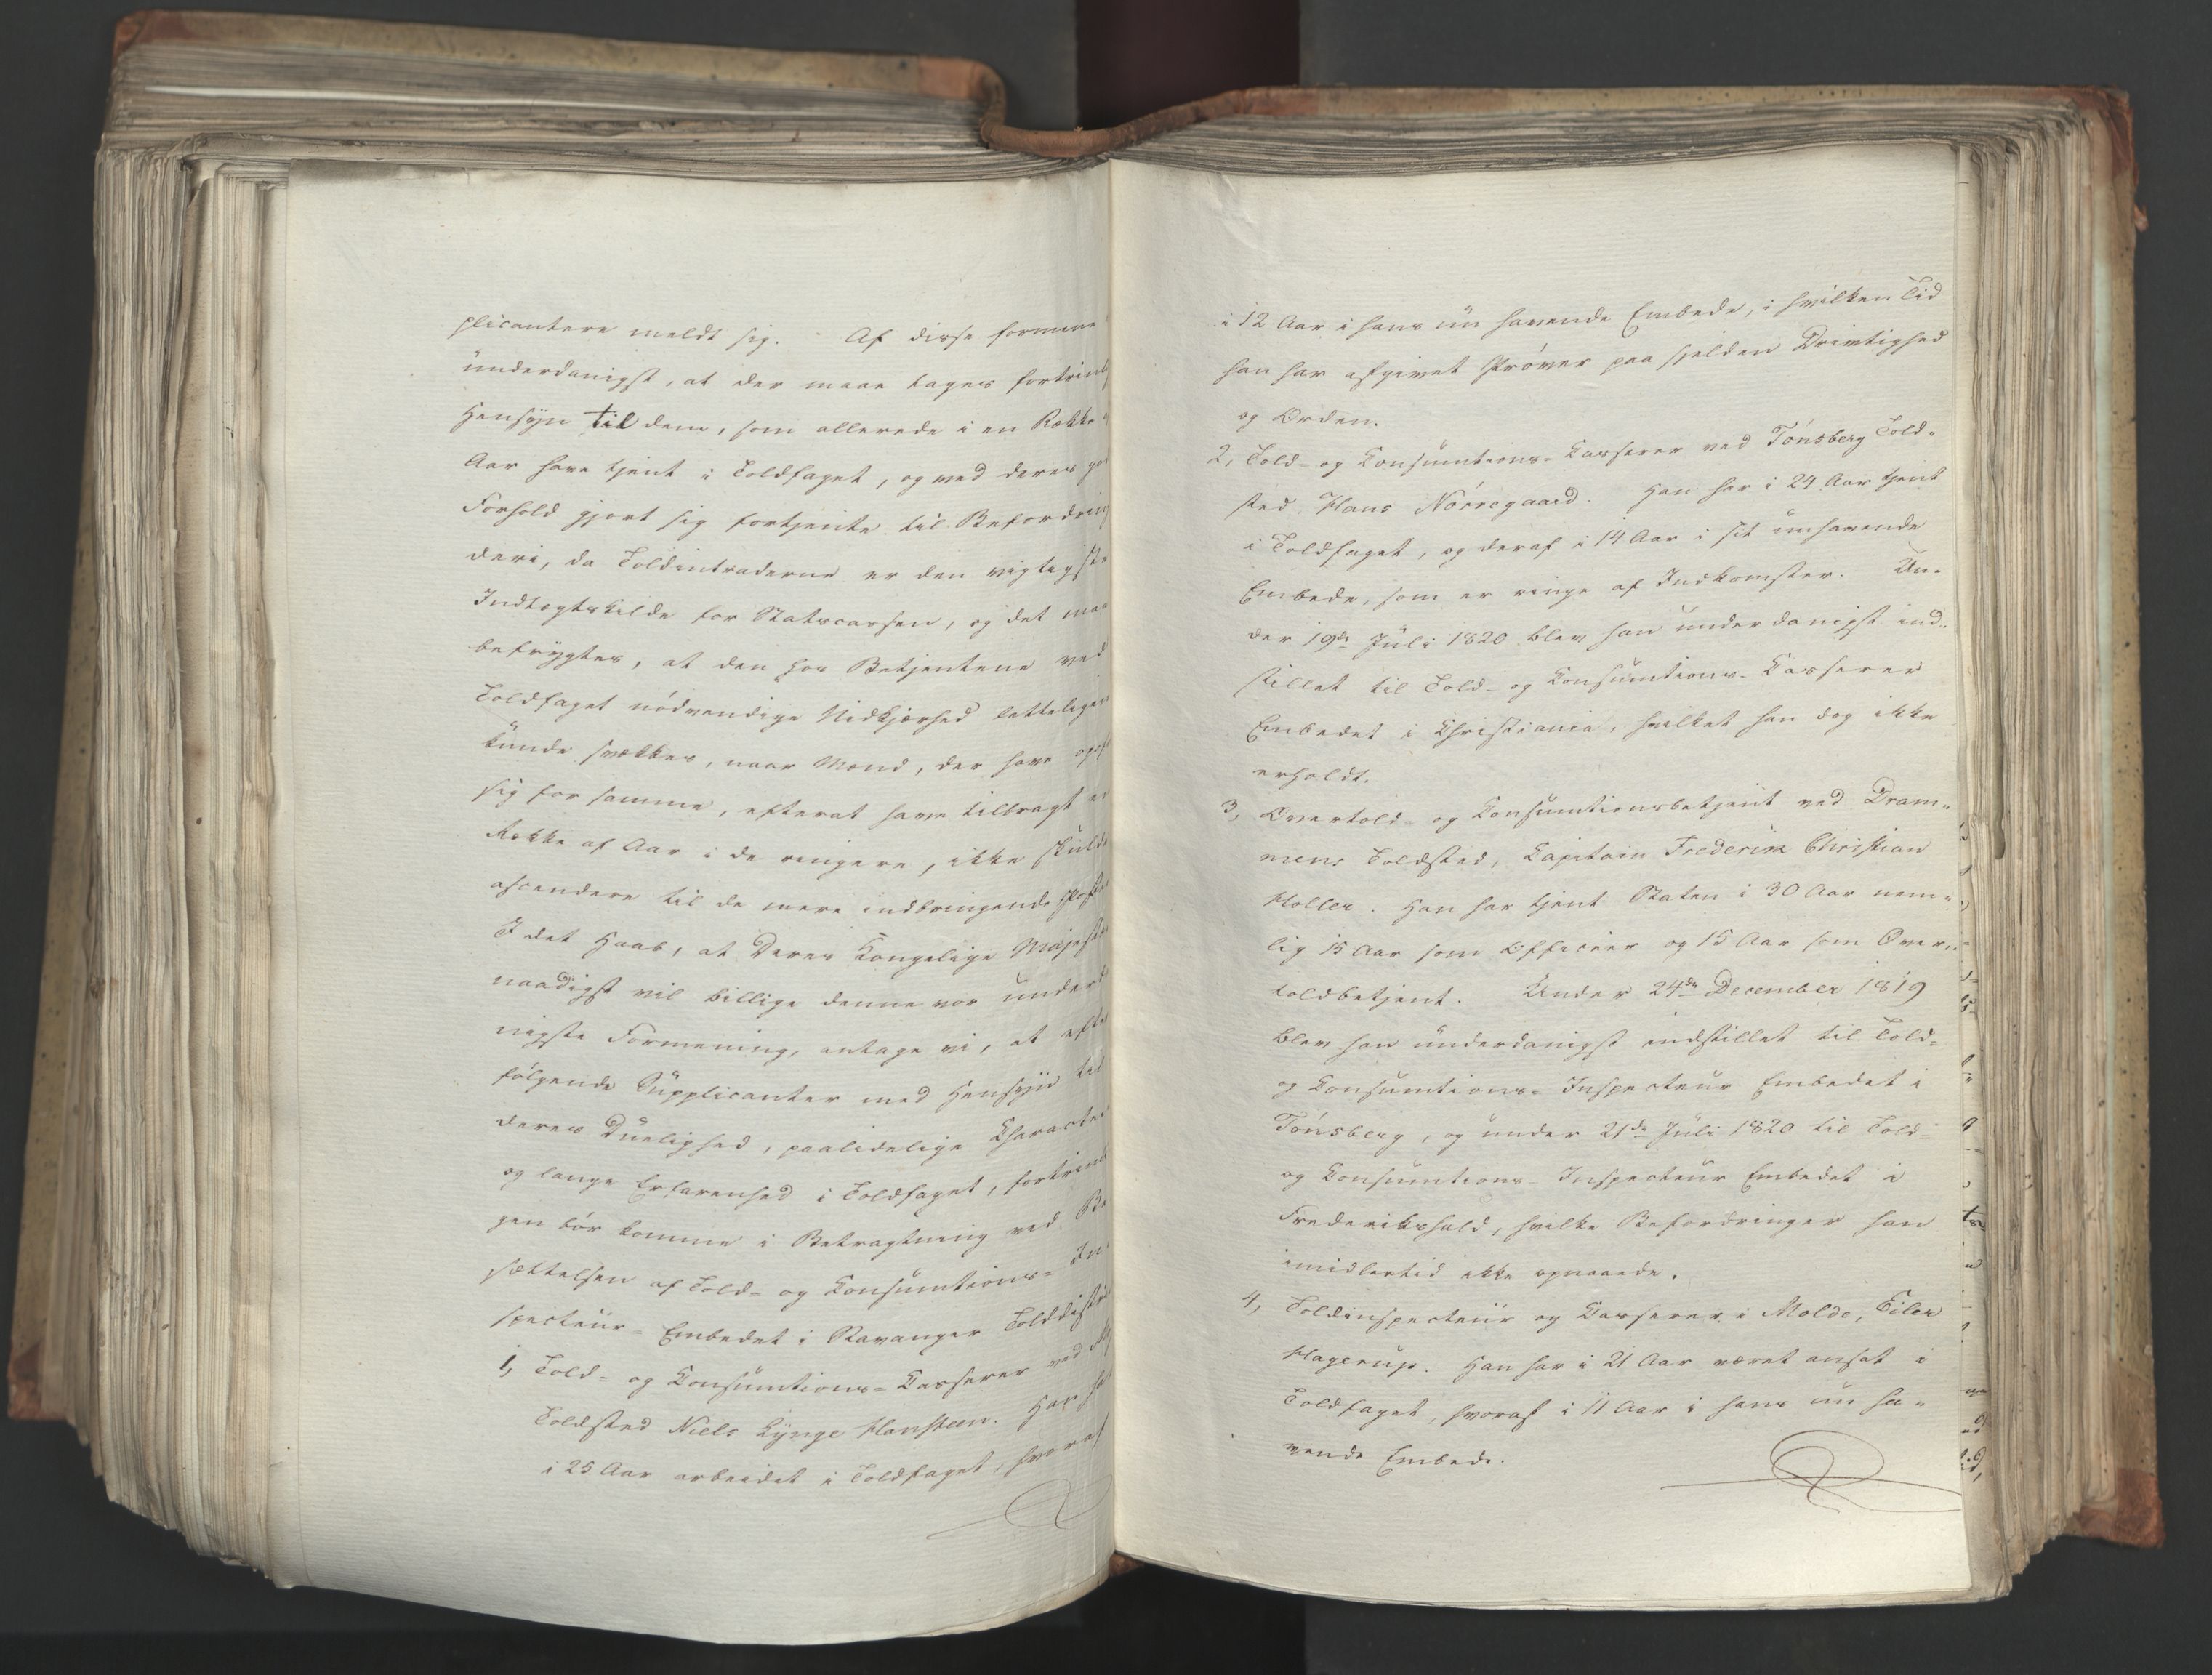 plicantere meldt sig. Af disse formene
underdanigst, at der maae tages fortrinlig
Hensyn til dem, som allerede i en Række
Aar have tjent i Toldfaget, og ved deres
Forhold gjort sig fortjente til Befordring
deri, da Toldintraderne er den vigtigste
Indtægtskilde for Statscassen, og det maa
befrygtes, at den hos Betjentene ved
Toldfaget nödvendige Nidkjærhed letteligen
kunde svækkes, naar Mænd, der have
sig for samme, efterat have tilbragt en
Række af Aar i de ringere, ikke skulde
ascendere til de mere indbringende Poster
I det Haab, at Deres Kongelige Majestæt
naadigst vil billige denne vor underda
nigste Formening, antage vi, at efter
fölgende Supplicanter med Hensyn til
deres Duelighed, paalidelige Character
og lange Erfarenhed i Toldfaget, fortrinli
gen bör komme i Betragtning ved Be
sættelsen af Told- og Consumtions- In
specteur- Embedet i Stavanger Tolddistrict
1, Told- og Consumtions- Casserer ved
Toldsted Niels Lynge Hansteen. Han har
i 25 Aar arbeidet i Toldfaget, hvoraf
i 12 Aar i hans nu havende Embede, i hvilken Tid
han har afgivet Pröver paa sjelden Drivtighed
og Orden.
2, Told- og Consumtions- Casserer ved Tönsberg Told-
sted Hans Nörregaard. Han har i 24 Aar tjent
i Toldfaget, og deraf i 14 Aar i sit nuhavende
Embede, som er ringe af Indkomster. Un-
der 19de Juli 1820 blev han underdanigst ind-
stillet til Told- og Consumtions- Casserer
Embedet i Christiania, hvilket han dog ikke
erholdt.
3, Overtold- og Consumtionsbetjent ved Dram-
mens Toldsted, Capitain Frederik Christian
Holler. Han har tjent Staten i 30 Aar nem-
lig 15 Aar som Officier og 15 Aar som Over-
toldbetjent. Under 24de December 1819
blev han underdanigst indstillet til Told-
og Consumtions- Inspecteur Embedet i
Tönsberg, og under 21de Juli 1820 til Told-
og Consumtions- Inspecteur Embedet i
Frederikshald, hvilke Befordringer han
imidlertid ikke opnaaede.
4, Toldinspecteur og Casserer i Molde, Eiler
Hagerup. Han har i 21 Aar været ansat i
Toldfaget, hvoraf i 11 Aar i hans nu ha-
vende Embede.